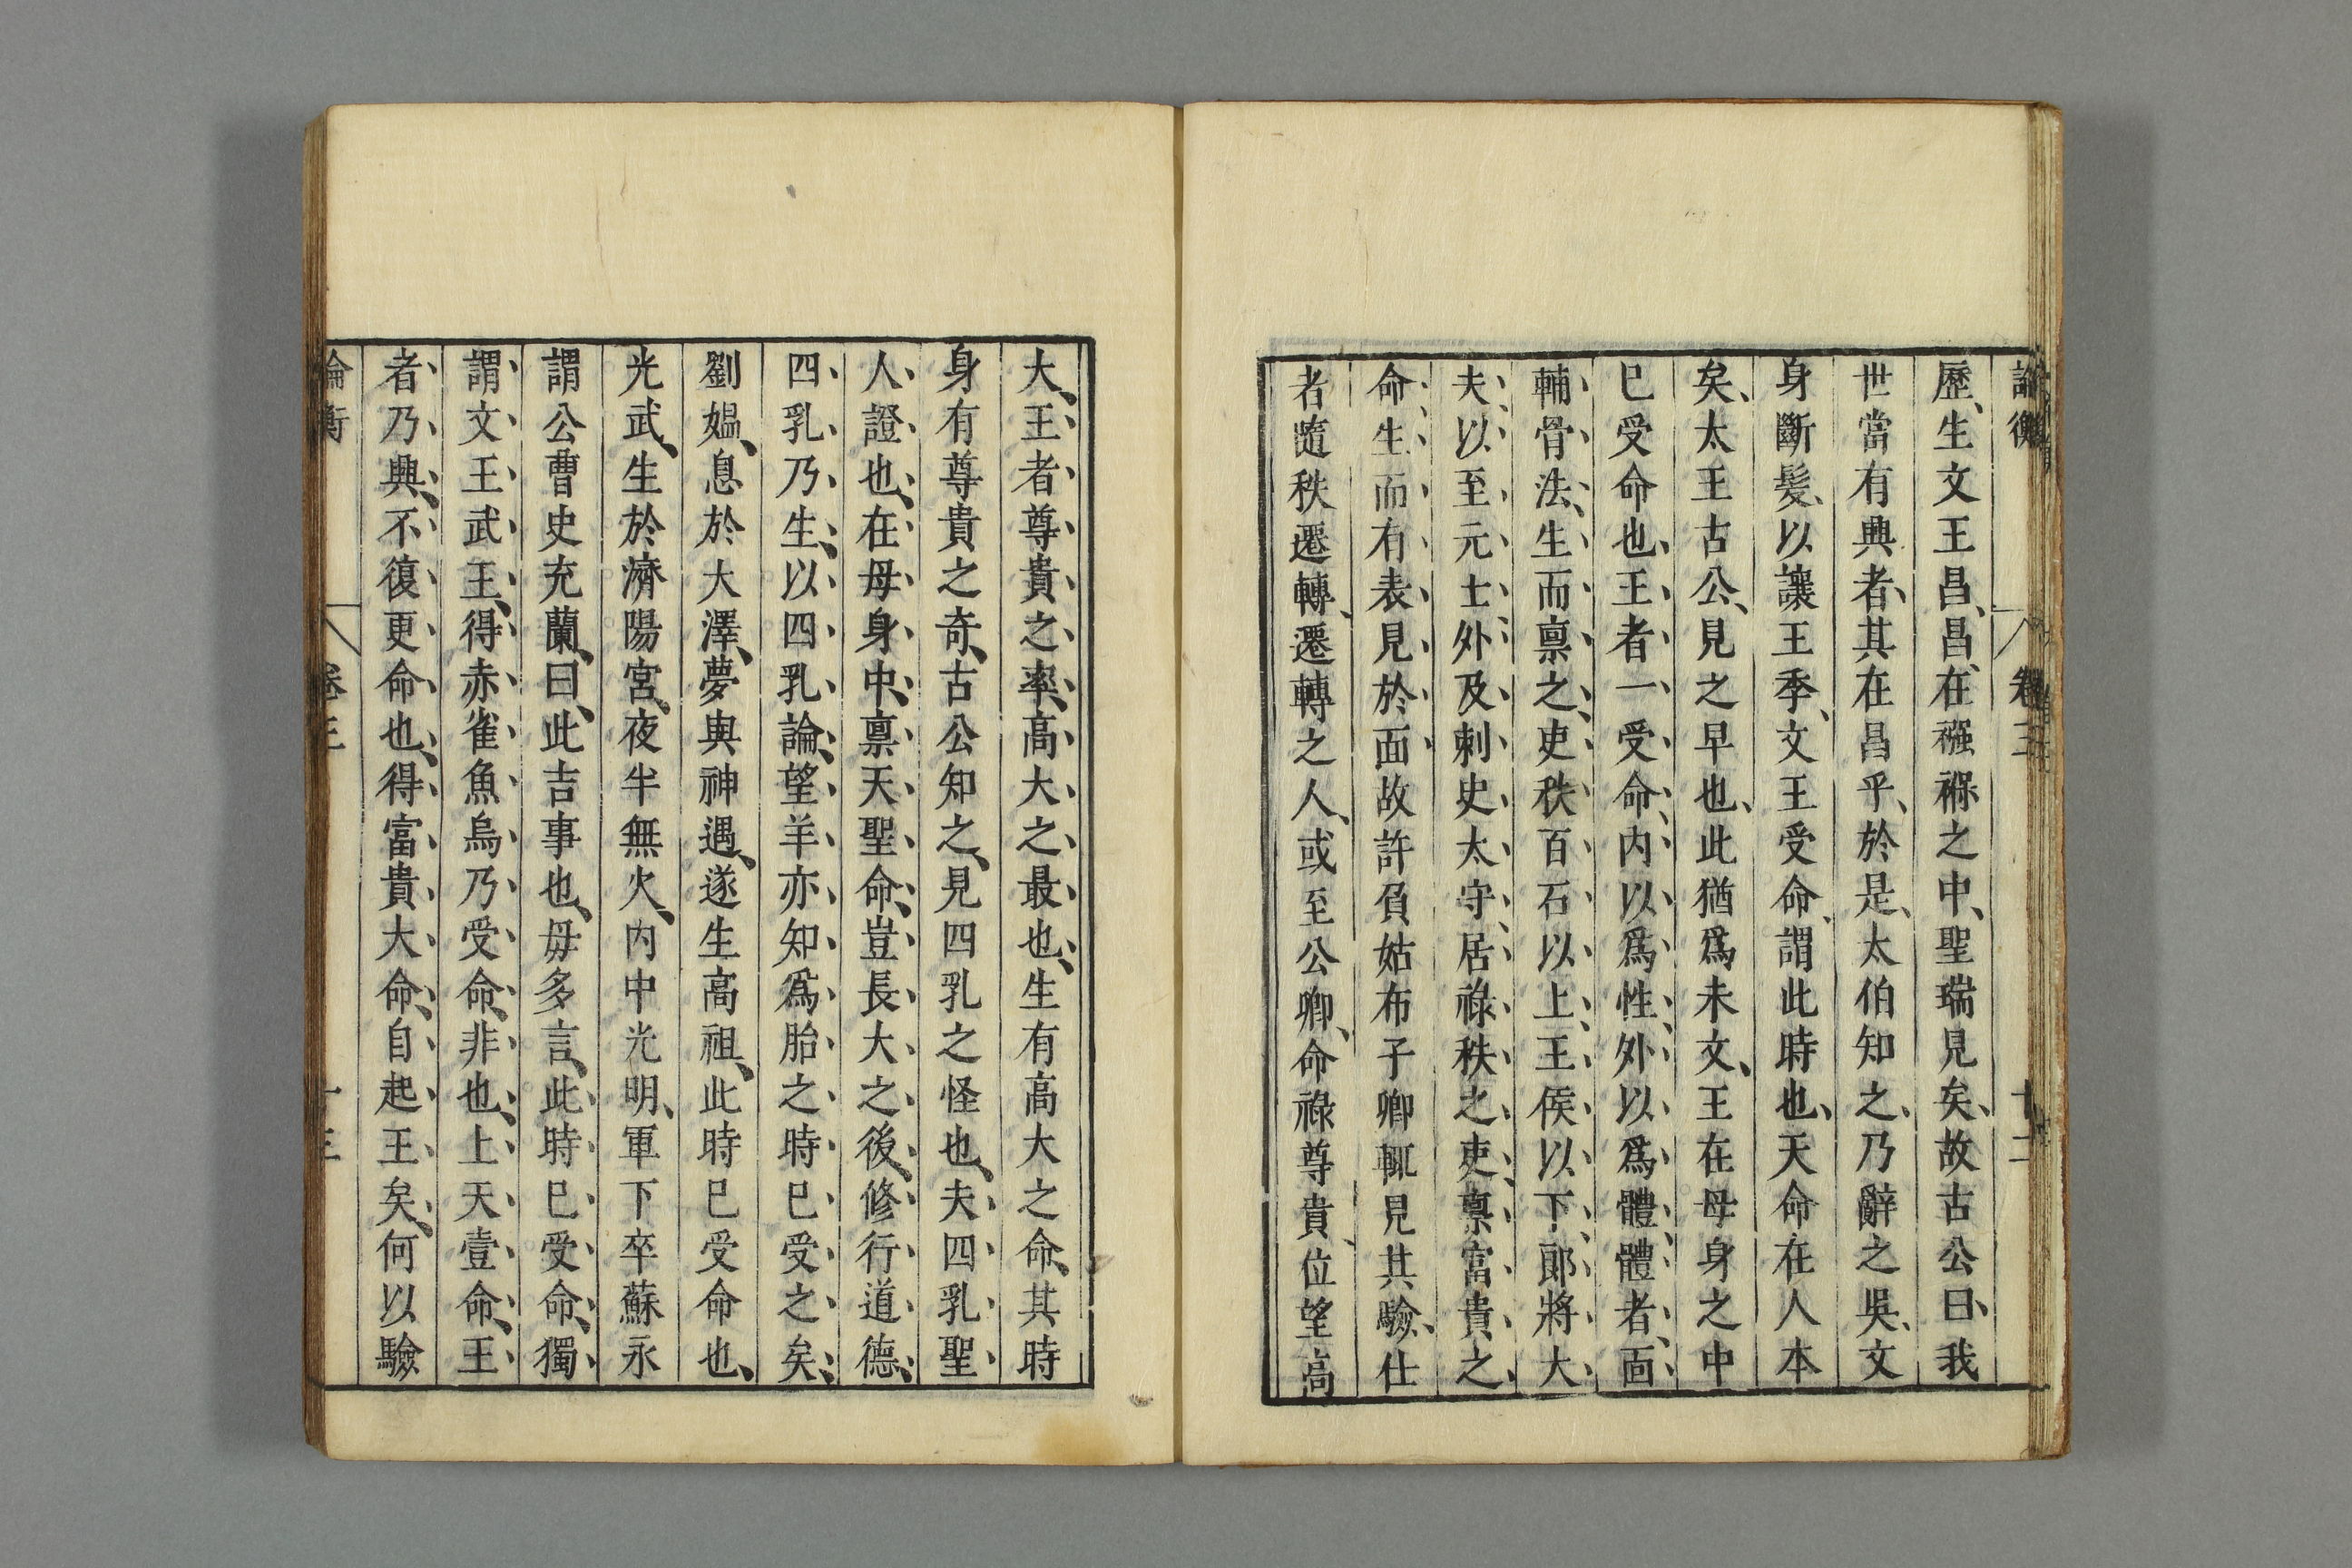 論衡 卷三 十二
歷、生文王昌、昌在襁褓之中、聖瑞見矣、故古公曰、我
世當有興者、其在昌乎、於是、太伯知之、乃辭之吳、文
身斷髮、以讓王季、文王受命、謂此時也、天命在人本
矣、太王古公、見之早也、此猶爲未文、王在母身之中
已受命也、王者一受命、内以爲性、外以爲體、體者、面
輔骨法、生而禀之、吏秩百石以上、王侯以下、郞將大
夫、以至元士、外及刺史、太守、居祿秩之吏、禀富貴之
命、生而有表見於面、故許負姑布子卿輒見其驗、仕
者隨秩遷轉、遷轉之人、或至公卿、命祿尊貴、位望高
大、王者尊貴之率、高大之最也、生有高大之命、其時
身有尊貴之奇、古公知之、見四乳之怪也、夫四乳聖
人證也、在母身中、禀天聖命、豈長大之後、修行道德、
四乳乃生、以四乳論、望羊亦知爲胎之時已受之矣、
劉媼、息於大澤、夢與神遇、遂生高祖、此時已受命也、
光武、生於濟陽宮、夜半無火、内中光明、軍下卒蘇永
謂公曹史充蘭、曰、此吉事也、毋多言、此時已受命、獨
謂文王武王、得赤雀魚烏乃受命、非也、上天壹命、王
者乃興、不復更命也、得富貴大命、自起王矣、何以驗
論衡 卷三 十三